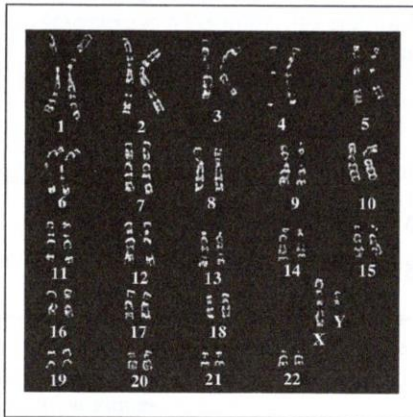 1 2 3 4 5
6 7 8 9 10
11 12 13 14 15
16 17 18 X Y
19 20 21 22